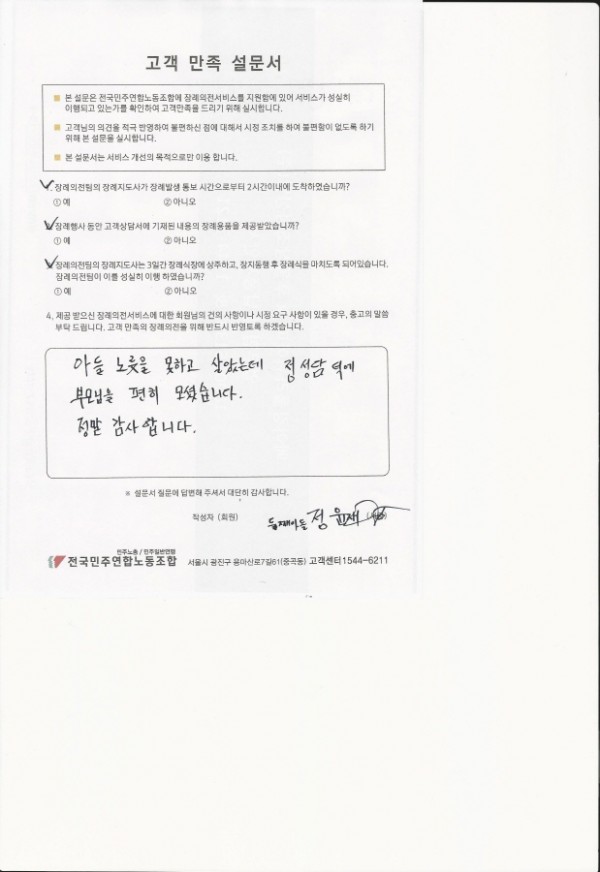 고객 만족 설문서
■ 본 설문은 전국민주연합노동조합에 장례의전서비스를 지원함에 있어 서비스가 성실히
이행되고 있는가를 확인하여 고객만족을 드리기 위해 실시합니다.
■ 고객님의 의견을 적극 반영하여 불편하신 점에 대해서 시정 조치를 하여 불편함이 없도록 하기
위해 본 설문을 실시합니다.
■ 본 설문서는 서비스 개선의 목적으로만 이용 합니다.
장례의전팀의 장례지도사가 장례발생 통보 시간으로부터 2시간이내에 도착하였습니까?
① 예 ② 아니오
장례행사 동안 고객상담서에 기재된 내용의 장례용품을 제공받았습니까?
① 예 ② 아니오
장례의전팀의 장례지도사는 3일간 장례식장에 상주하고, 장지동행 후 장례식을 마치도록 되어있습니다.
장례의전팀이 이를 성실히 이행 하였습니까?
① 예 ② 아니오
4. 제공 받으신 장례의전서비스에 대한 회원님의 건의 사항이나 시정 요구 사항이 있을 경우, 충고의 말씀
부탁 드립니다. 고객 만족의 장례의전을 위해 반드시 반영토록 하겠습니다.
아들 노릇을 못하고 살았는데 정성담 덕에
부모님을 편히 모셨습니다.
정말 감사합니다.
※ 설문서 질문에 답변해 주셔서 대단히 감사합니다.
작성자 (회원) 둘째아들 정윤재
민주노총 / 민주일반연맹
전국민주연합노동조합 서울시 광진구 용마산로7길61(중곡동) 고객센터1544-6211